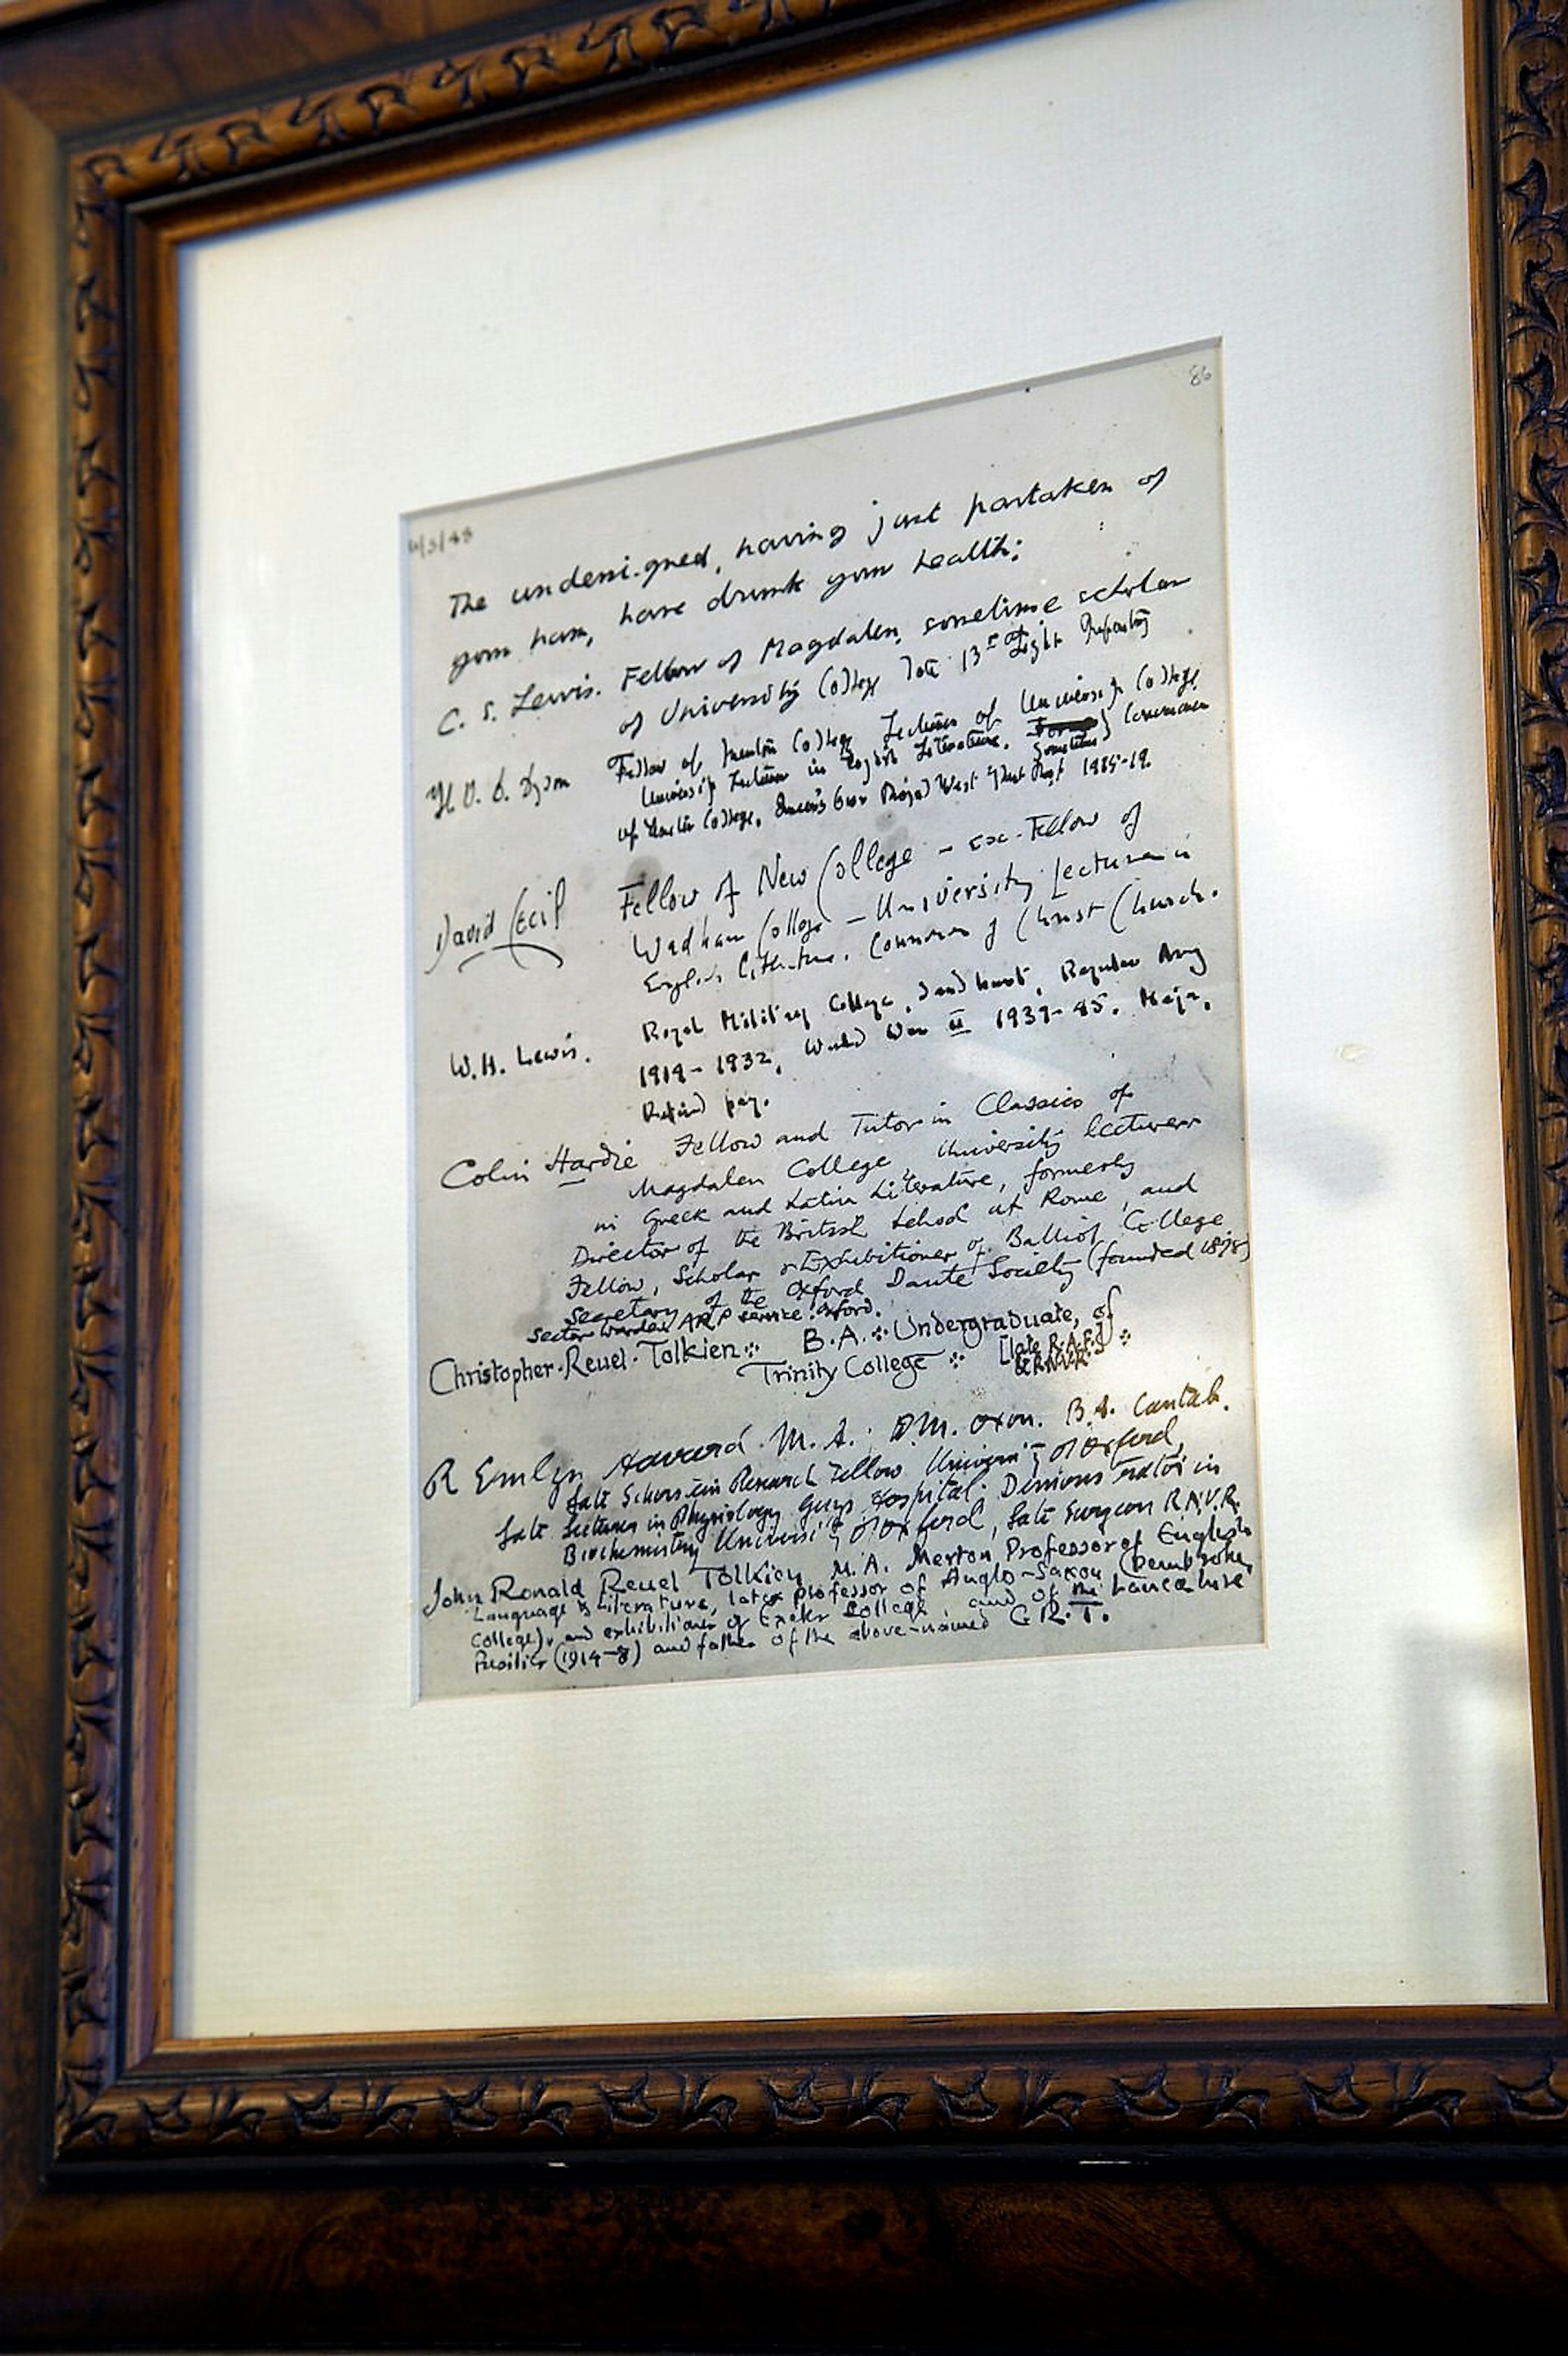 86
The undersigned, having just partaken of
your ham, have drunk your health:
C. S. Lewis. Fellow of Magdalen, sometime scholar
of University College late 13th Light Infantry
H. V. D. Dyson Fellow of Merton College Lecturer of University College
University Lecturer in English Literature. sometime Commoner
of Exeter College. Queen's Own Royal West Kent Regt 1915-19.
David Cecil Fellow of New College – ex-Fellow of
Wadham College – University Lecturer in
English Literature. Commoner of Christ Church.
W.H. Lewis. Royal Military College, Sandhurst, Regular Army
1914-1932, World War II 1939-45. Major,
Retired pay.
Colin Hardie Fellow and Tutor in Classics of
Magdalen College University lecturer
in Greek and Latin Literature, formerly
Director of the British School at Rome, and
Fellow, Scholar & Exhibitioner of Balliol College
Secretary of the Oxford Dante Society (founded 1876)
Sector Warden ARP service Oxford.
Christopher·Reuel·Tolkien B.A. Undergraduate, of
Trinity College [late R.A.F.]
& RNVR
R Emlyn Havard M.A., DM. Oxon. B.A. Cantab.
Late Schorstein Research Fellow University of Oxford,
Late Lecturer in Physiology Guys Hospital. Demonstrator in
Biochemistry University of Oxford, Late Surgeon R.N.V.R.
John Ronald Reuel Tolkien M.A. Merton Professor of English
Language & Literature, late professor of Anglo-Saxon (Pembroke
College), and exhibitioner of Exeter College, and of the Lancashire
Fusiliers (1914-8) and father of the above-named C.R.T.